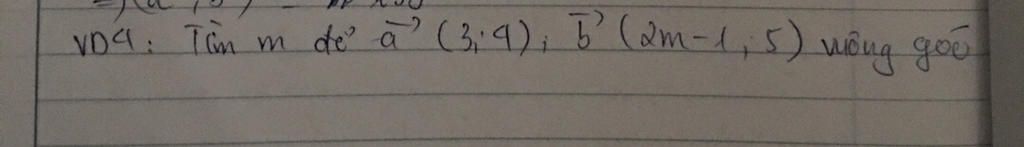 VD4: Tìm m để a→ (3;4); b→ (2m-1;5) vuông góc